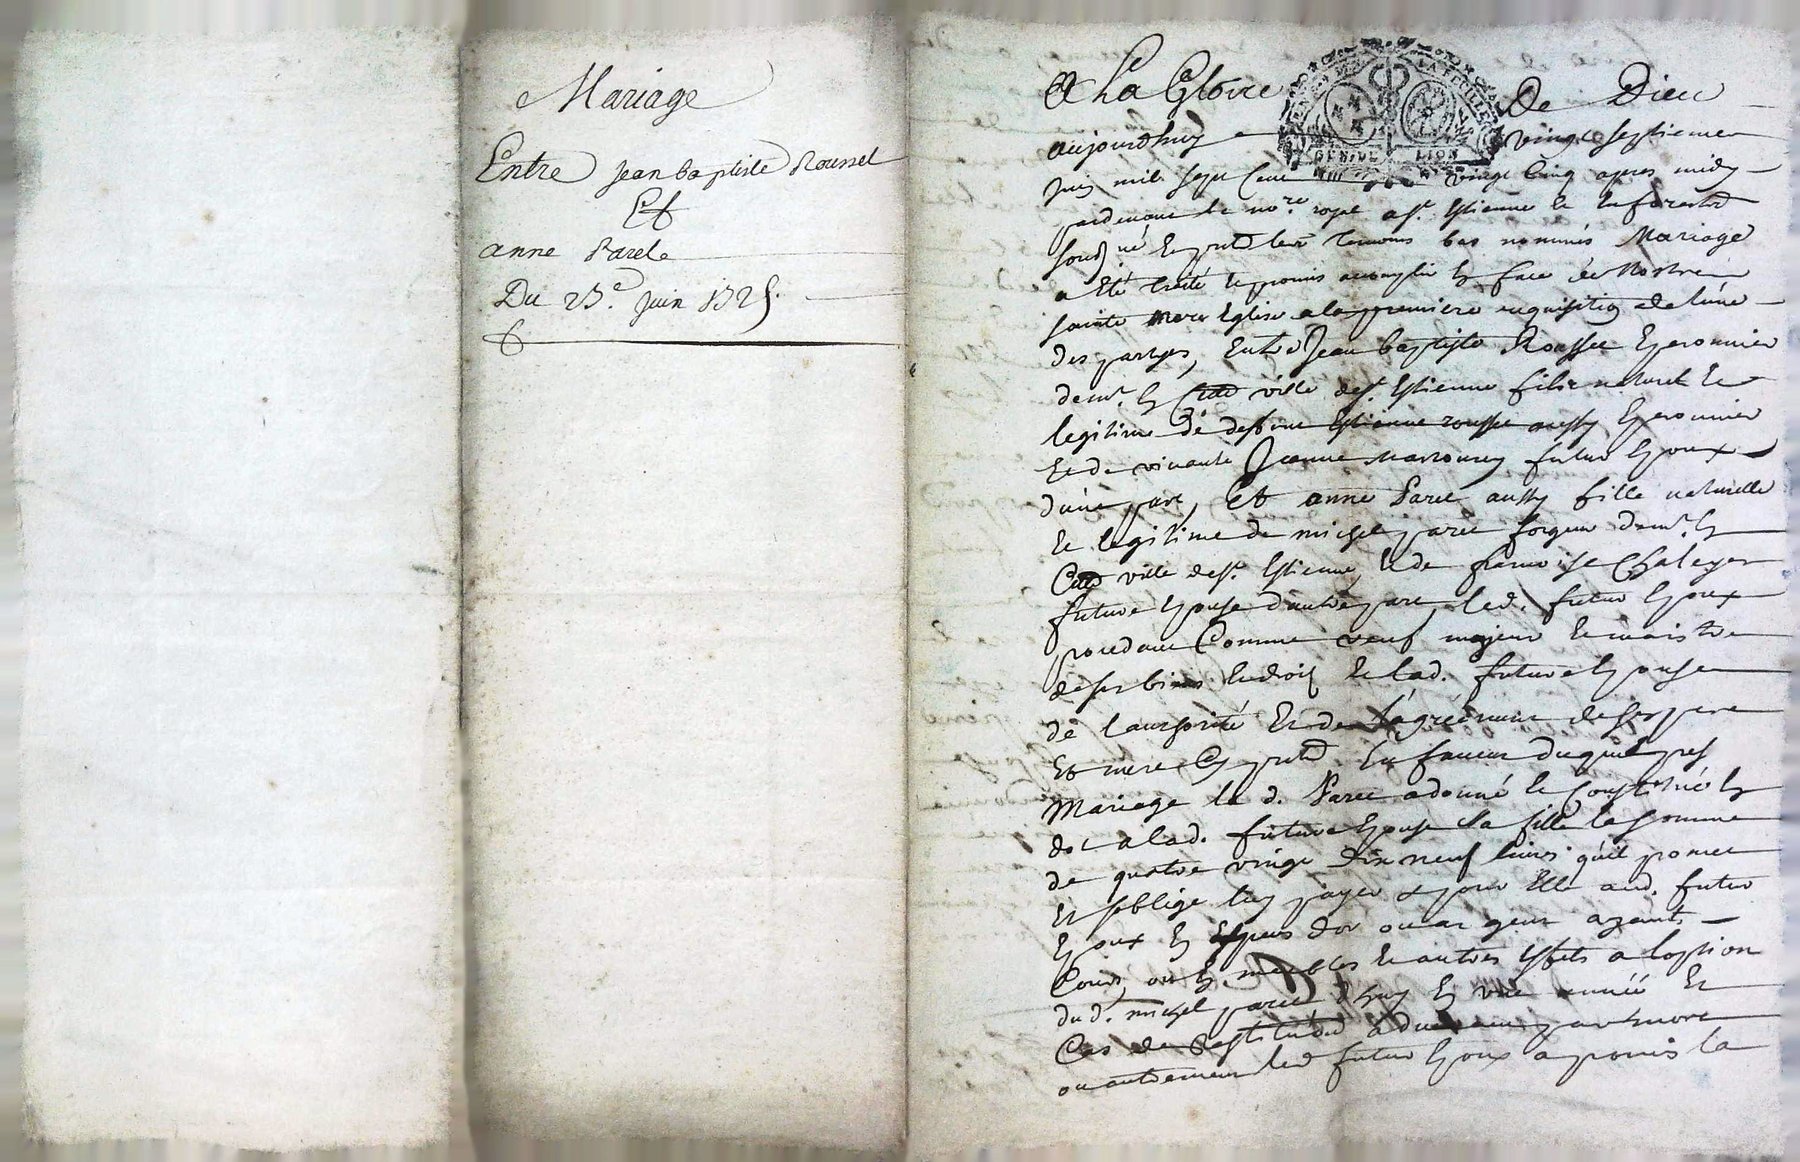 Mariage
Entre Jean baptiste Roussel
Et
anne Parel
Du 27e. Juin 1725.
A La Gloire De Dieu
GEN. DE LION
aujourdhuy vingt septieme
juin mil sept cent vingt cinq apres midy
pardevant le nore. royal a st. Estienne
soussné. temoins bas nommés Mariage
a été traité et promis accomplir en face de Nostre
sainte mere Eglise a la premiere requisition de lune
des partyes, Entre Jean baptiste Roussel Eperonnier
demt. en cette ville de st. Estienne fils naturel et
legitime de deffunt Estienne roussel aussy Eperonnier
Et de vivante Jeanne futur Epoux
dune part, Et anne Parel aussy fille naturelle
et legitime de michel parel forgeur demt. en
Cette ville de st. Estienne, et de francoise Chaleyer
future Epouse dautre part, led. futur Epoux
procedant Comme veuf majeur et maistre
de ses biens et droits et lad. future Epouse
de lauthorité Et de l'agrément de ses pere
Et mere En faveur duquel pnt
Mariage le d. Parel a donné et Constitué en
dot a lad. future Epouse sa fille la somme
de quatre vingt dix neuf livres qu'il promet
Et soblige luy payer et pour Elle aud. futur
Epoux en Especes dor ou argent ayants
Cours, ou en meubles et autres Effets a loption
du d. michel parel dhuy en une année Et
Cas de Restitution advenant par mort
ou autrement led futur Epoux a promis la